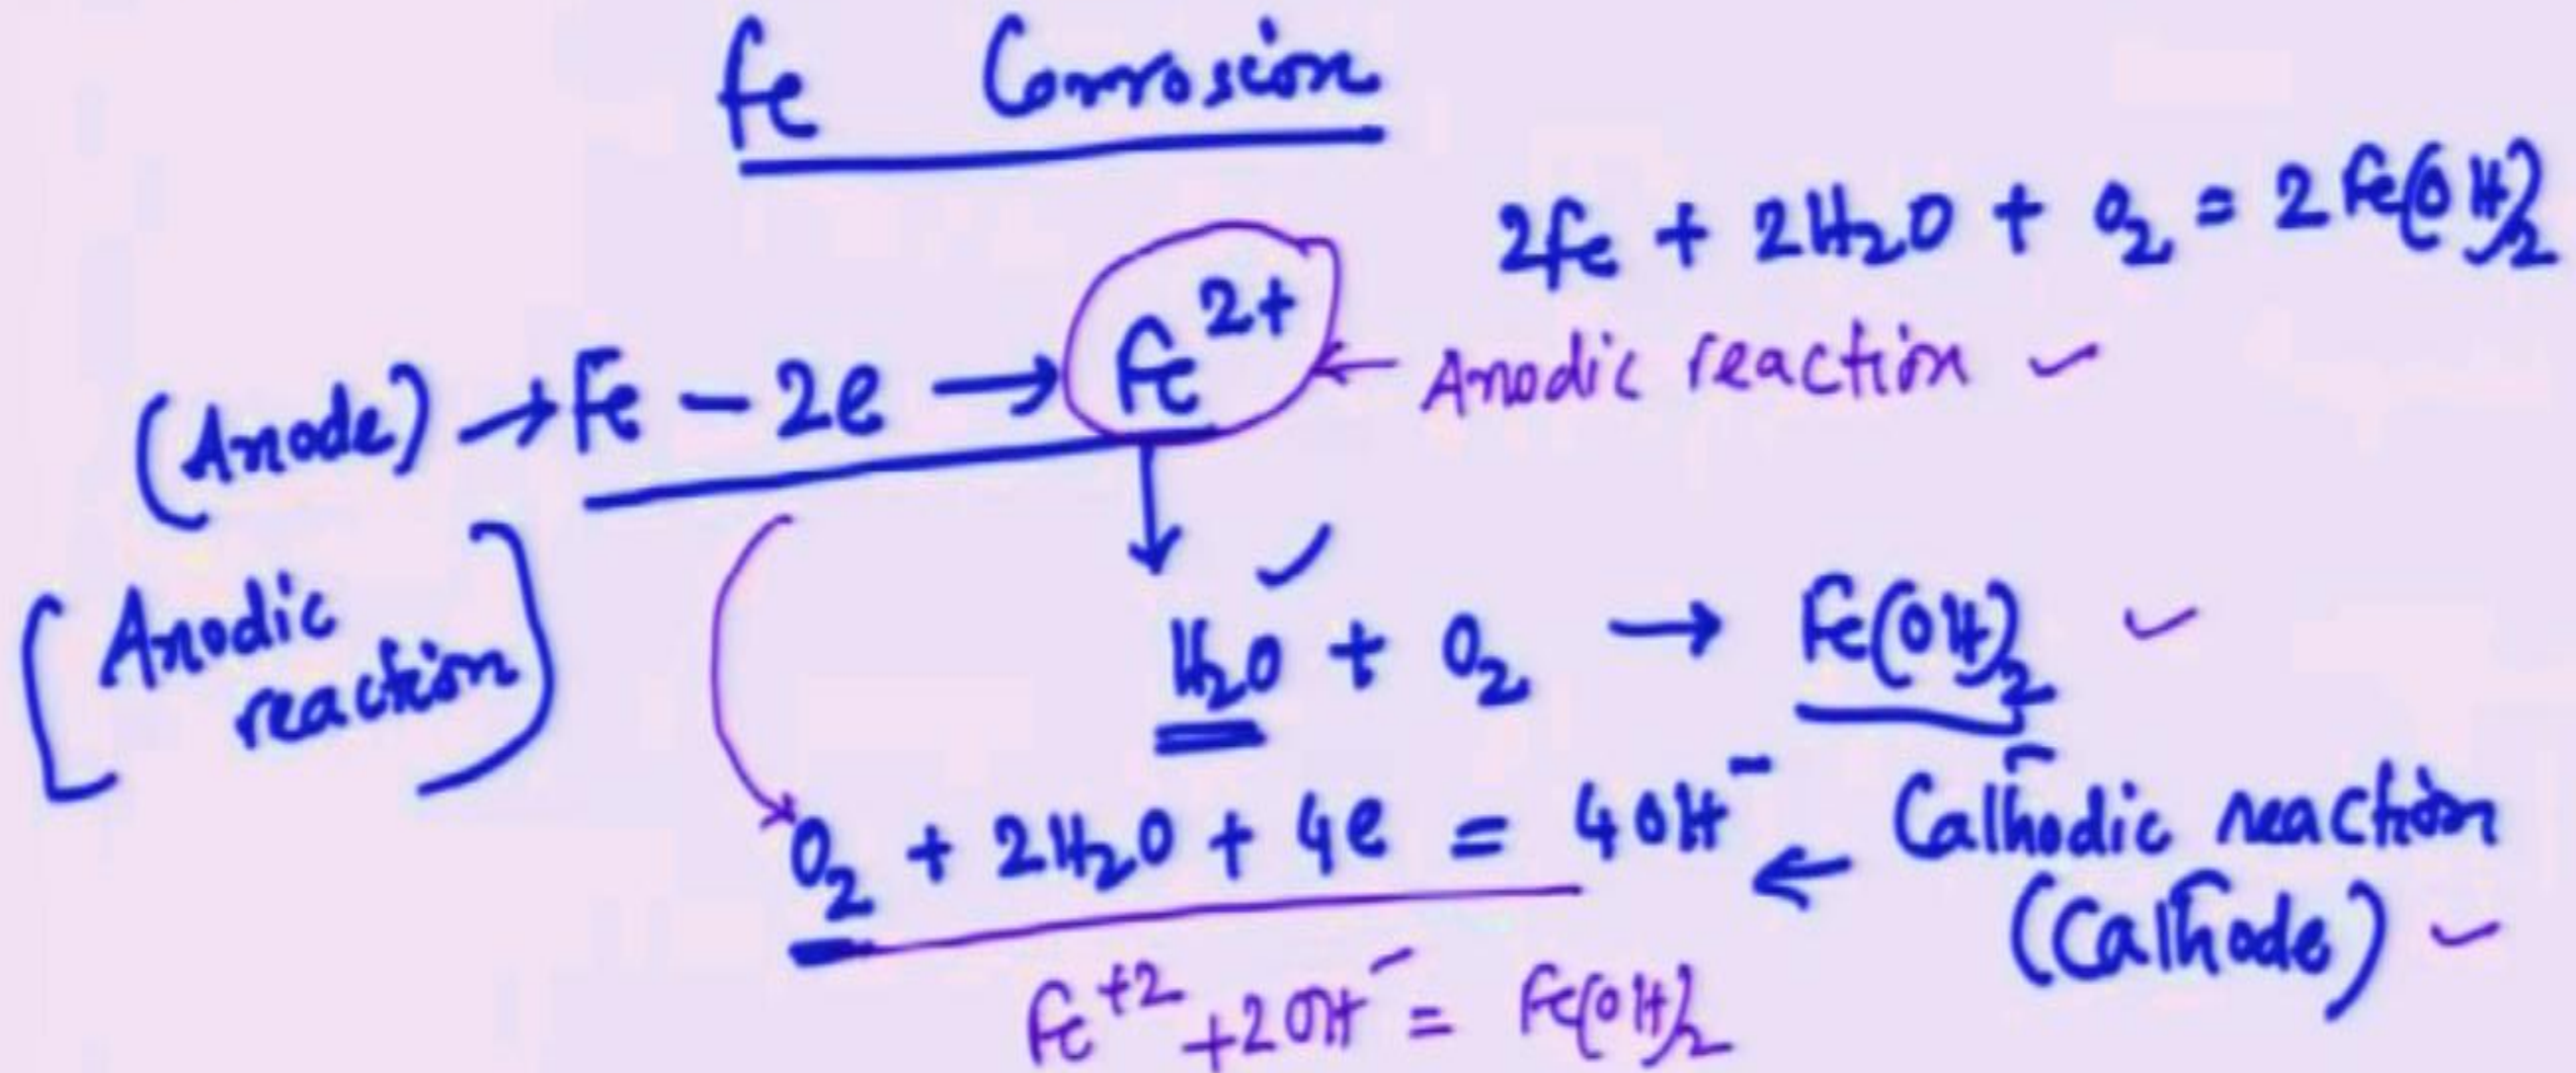 Fe Corrosion
2Fe + 2H₂O + O₂ = 2Fe(OH)₂
(Anode) → Fe - 2e → Fe²⁺ ← Anodic reaction ✓
[Anodic
reaction]
H₂O + O₂ → Fe(OH)₂ ✓
O₂ + 2H₂O + 4e = 4OH⁻ ← Cathodic reaction
(Cathode) ✓
Fe⁺² + 2OH⁻ = Fe(OH)₂